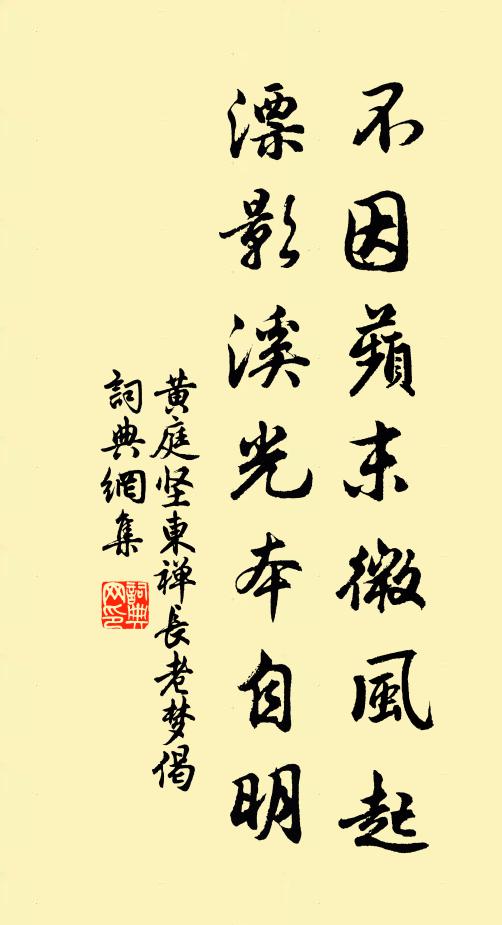 不因蘋末微風起
漂影溪光本自明
黄庭坚東禅長老梦偈
詞典網集
詞典网印